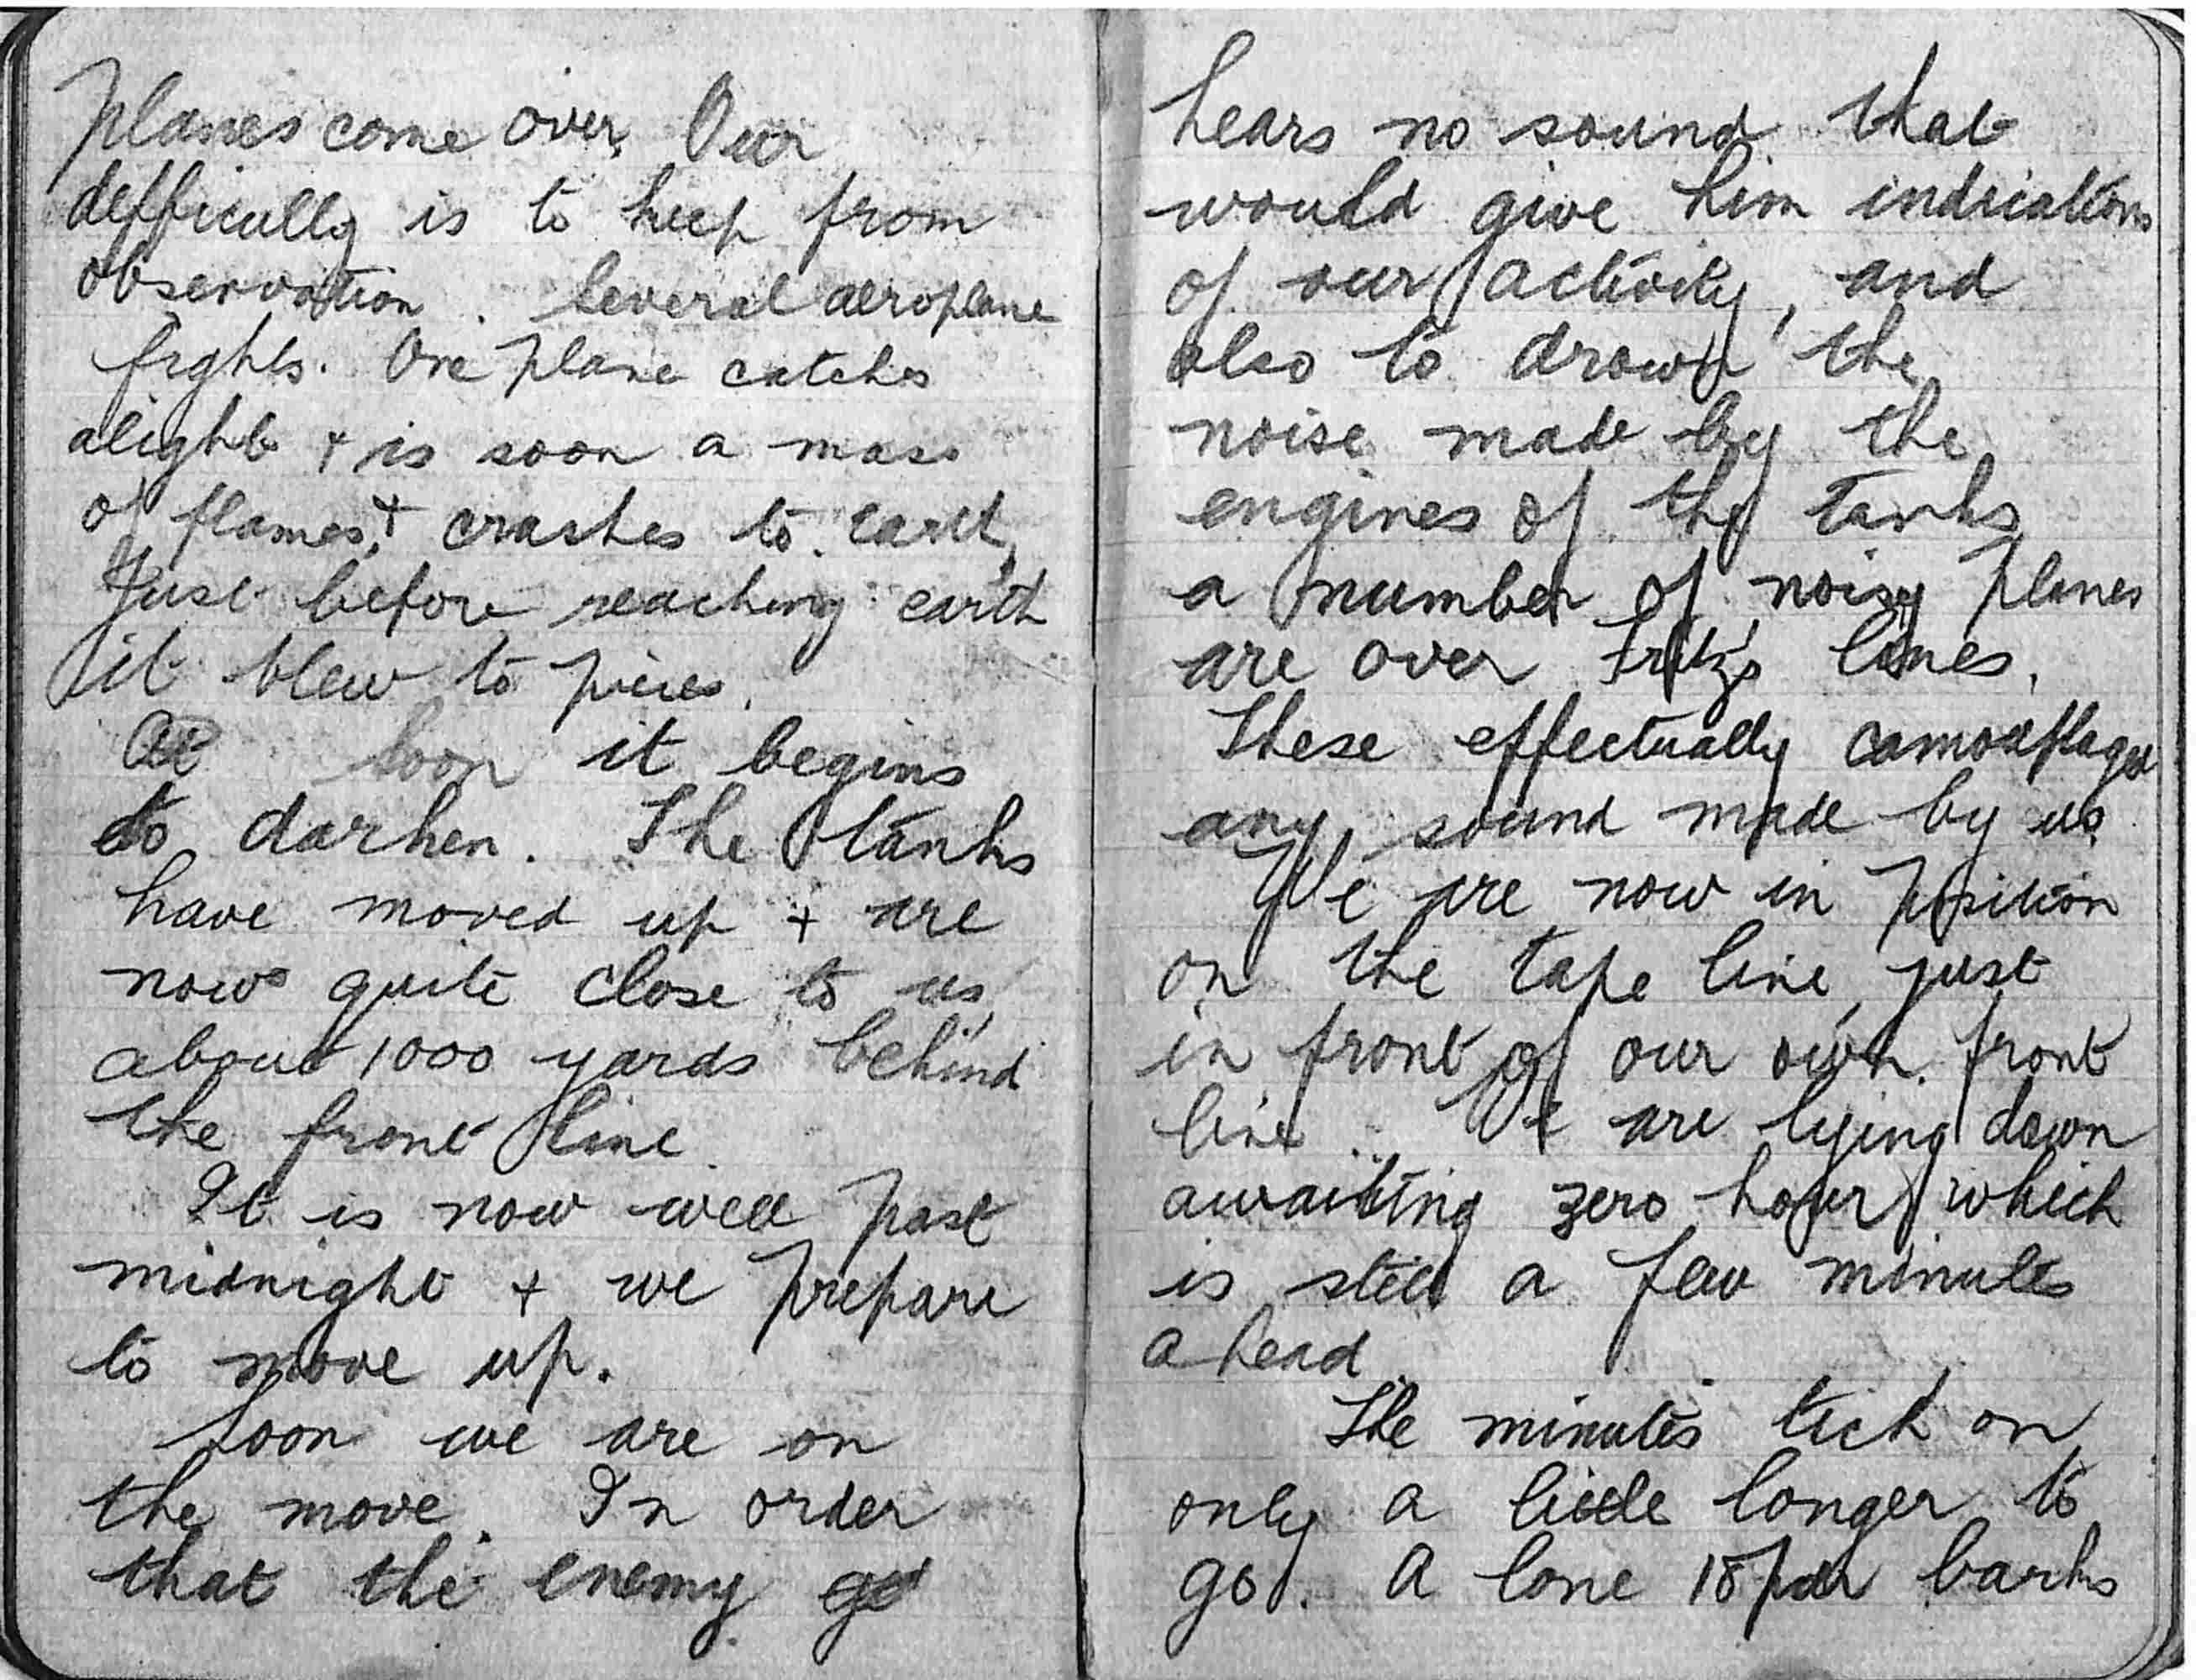 Planes come over. Our
difficulty is to keep from
observation. Several aeroplane
fights. One plane catches
alight + is soon a mass
of flames, + crashes to earth,
Just before reaching earth
it blew to pieces.
Soon it begins
to darken. The tanks
have moved up + are
now quite close to us,
about 1000 yards behind
the front line.
It is now well past
midnight + we prepare
to move up.
Soon we are on
the move. In order
that the enemy
hears no sound that
would give him indriations
of our activity, and
also to drown the
noise made by the
engines of the tanks
a number of noisy planes
are over Fritz's lines.
These effectually camouflaged
any sound made by us.
We are now in position
on the tape line, just
in front of our own front
line. We are lying down
awaiting zero hour which
is still a few minutes
ahead.
The minutes tick on
only a little longer to
go. A lone 18 pdr barks